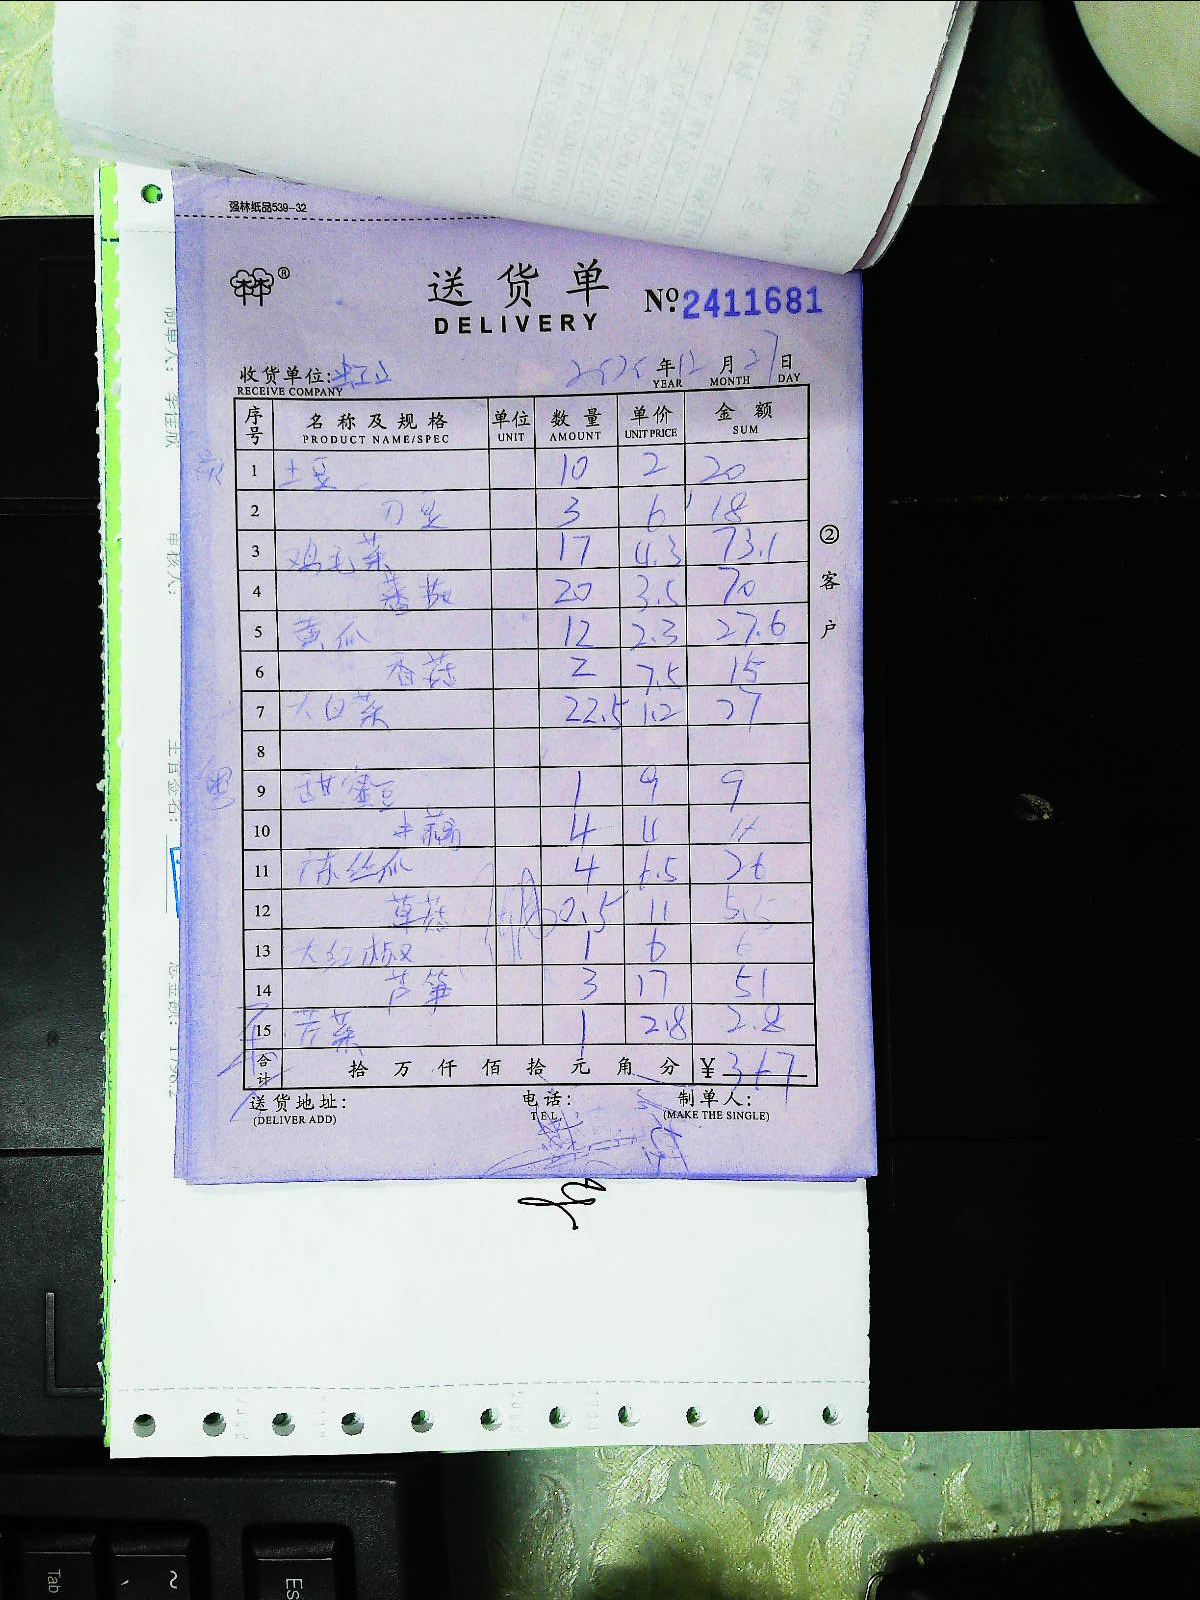 强林纸品539-32
送货单 №2411681
DELIVERY
收货单位: 年12月27日
RECEIVE COMPANY YEAR MONTH DAY
序号 名称及规格 单位 数量 单价 金额
PRODUCT NAME/SPEC UNIT AMOUNT UNIT PRICE SUM
1 土豆 10 2 20
2 刀豆 3 6 18
3 鸡毛菜 17 4.3 73.1
4 蕃茄 20 3.5 70
5 黄瓜 12 2.3 27.6
6 香菇 2 7.5 15
7 大白菜 22.5 1.2 27
8
9 甜蜜豆 1 9 9
10 4 4
11 丝瓜 4 6.5 26
12 草菇 0.5 11 5.5
13 大红椒 1 6 6
14 芦笋 3 17 51
15 芹菜 1 2.8 2.8
合计 拾万仟佰拾元角分 ¥367
送货地址: 电话: 制单人:
(DELIVER ADD) TEL. (MAKE THE SINGLE)
②客户
制单人:
审核人:
主管签名:
总金额:
Tab
~
Es